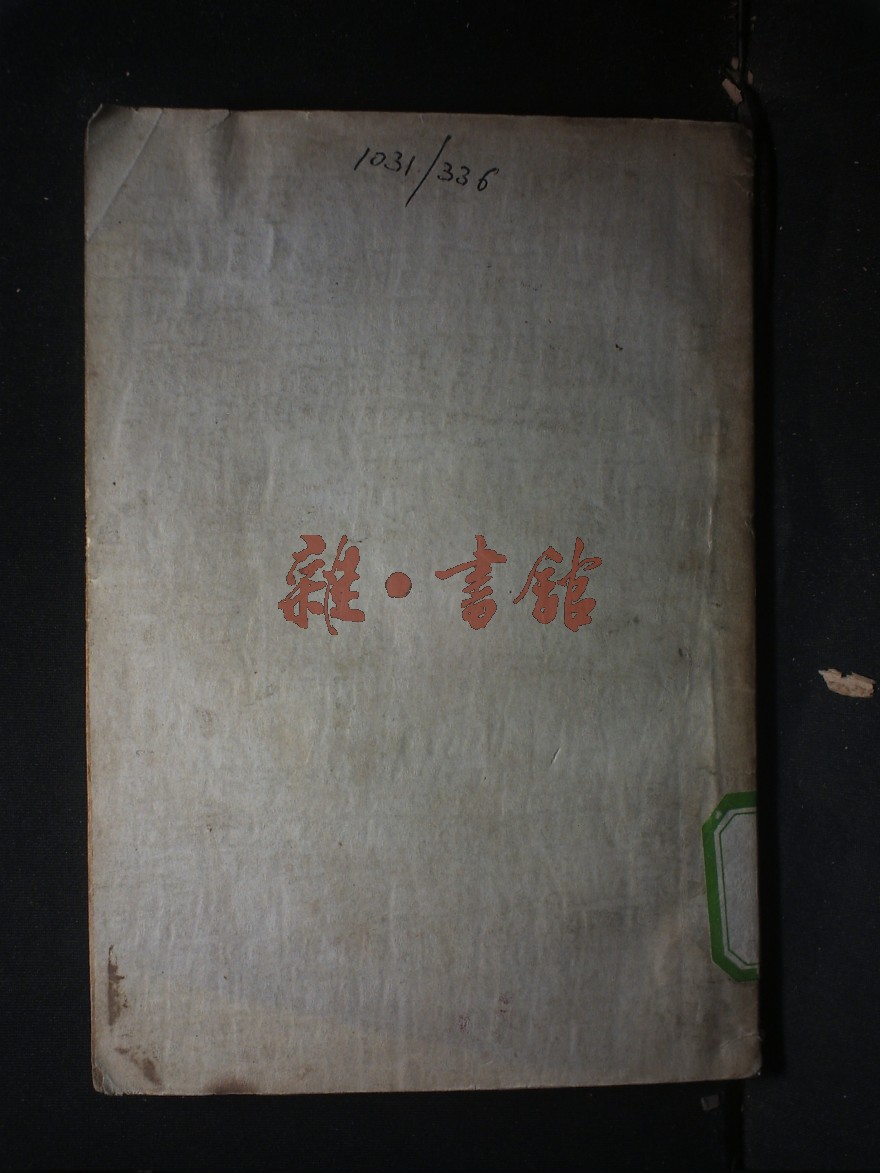 1031/336
雜·書館